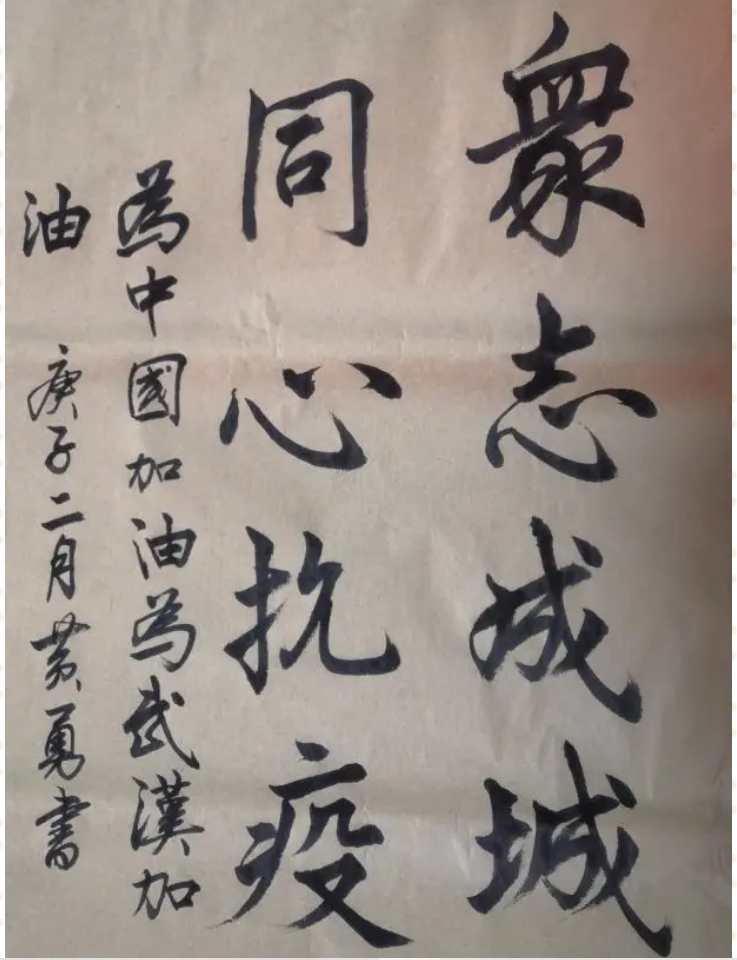 衆志成城
同心抗疫
為中國加油為武漢加
油 庚子二月黄勇書